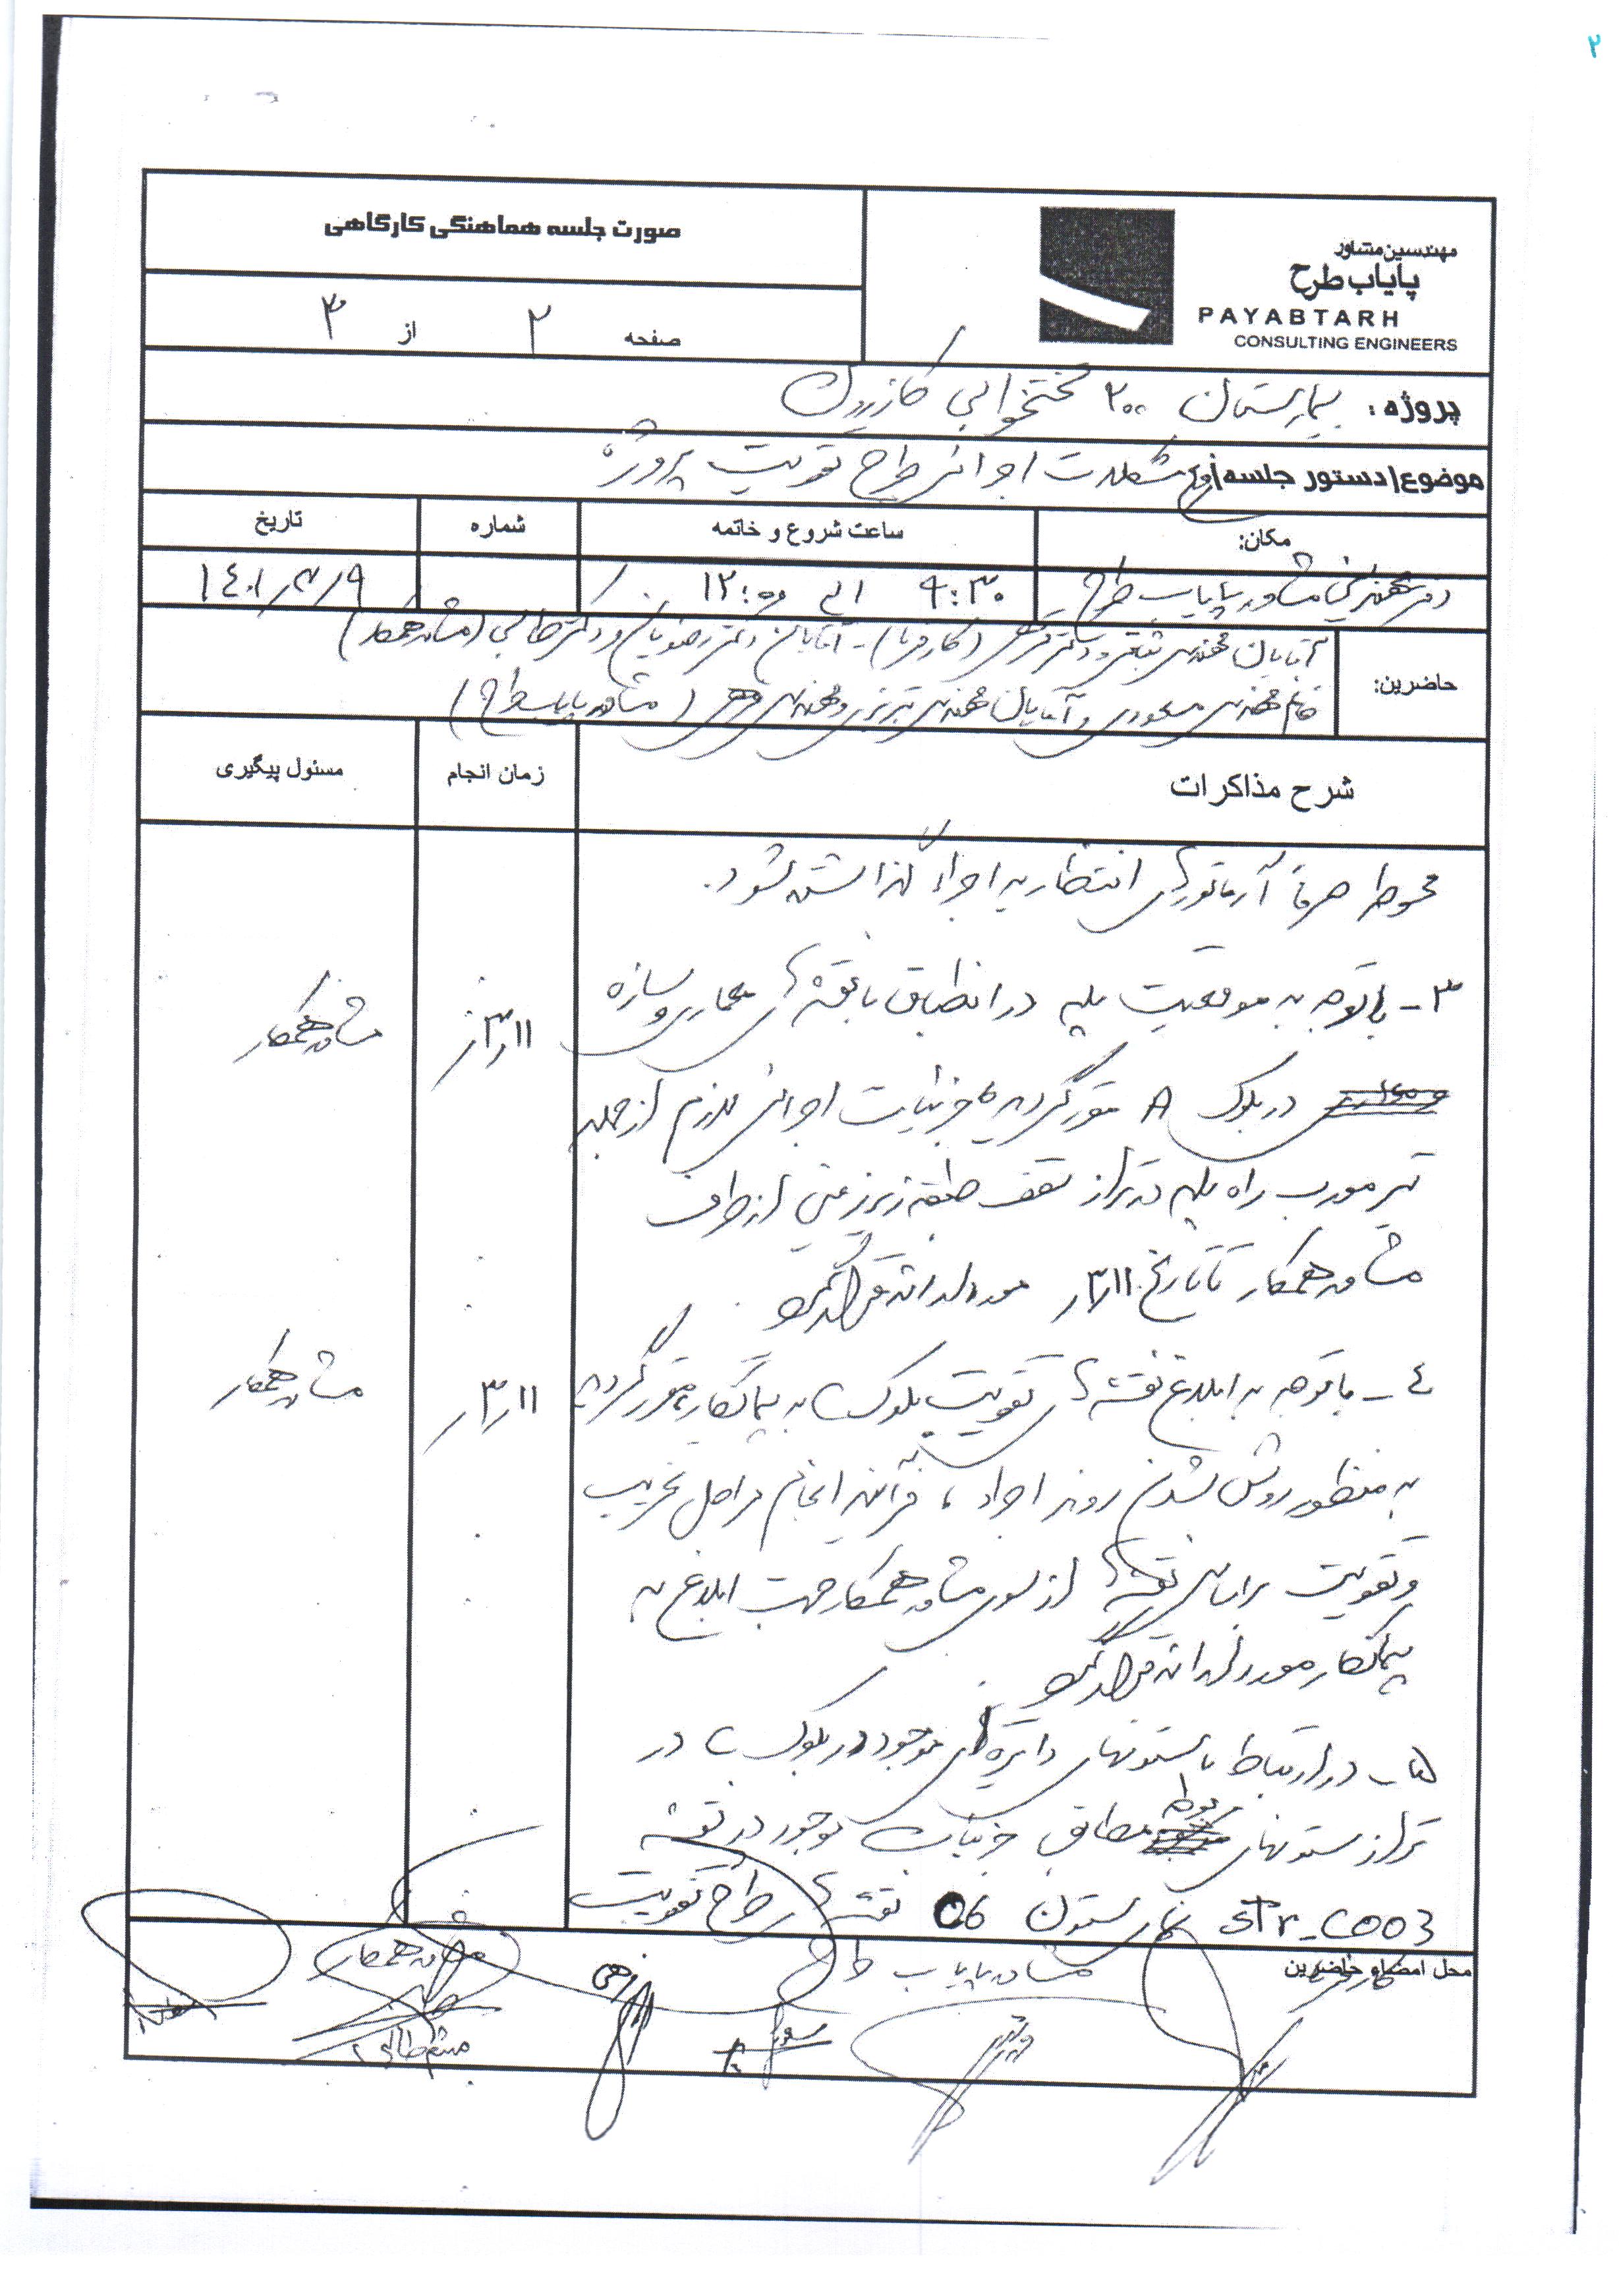 ۲
صورت جلسه هماهنگی کارگاهی
صفحه ۲ از ۳
مهندسین مشاور
پایاب طرح
PAYABTARH
CONSULTING ENGINEERS
پروژه: بیمارستان ۲۰۰ تختخوابی کازرون
موضوع/دستور جلسه: رفع مشکلات اجرائی طرح تقویت پروژه
مکان: ساعت شروع و خاتمه شماره تاریخ
دفتر مهندسین مشاور پایاب طرح ۹:۳۰ الی ۱۲:۰۰ ۱۴۰۱/۳/۹
حاضرین: آقایان مهندس و دکتر (کارفرما) - آقایان دکتر رضویان و دکتر طالبی (مشاور همکار)
خانم مهندس مسعودی و آقایان مهندس تبریزی و مهندس (مشاور پایاب طرح)
شرح مذاکرات زمان انجام مسئول پیگیری
محوطه صرفاً آرماتورهای انتظار به اجرا گذاشته شود.
۳- با توجه به موقعیت پله در انطباق با نقشه های معماری و سازه ۳/۱۱ مشاور همکار
در بلوک A مقرر گردید جزئیات اجرائی لازم از جمله
تیر مورب راه پله در تراز سقف طبقه زیرزمین از طرف
مشاور همکار تا تاریخ ۳/۱۱ مورد ارائه قرار گیرد.
۴- با توجه به ابلاغ نقشه های تقویت بلوک به پیمانکار، مقرر گردید ۳/۱۱ مشاور همکار
به منظور روشن شدن روند اجراء، فرآیند انجام مراحل تخریب
و تقویت بر اساس نقشه ها از سوی مشاور همکار جهت ابلاغ به
پیمانکار مورد ارائه قرار گیرد.
۵- در ارتباط با ستونهای دایره ای موجود در بلوک در
تراز ستونهای مطابق جزئیات موجود در نقشه
STR-C003 ستون C6 نقشه های طرح تقویت
محل امضاء حاضرین
کارفرما مشاور پایاب طرح مشاور همکار
میثم طالبی